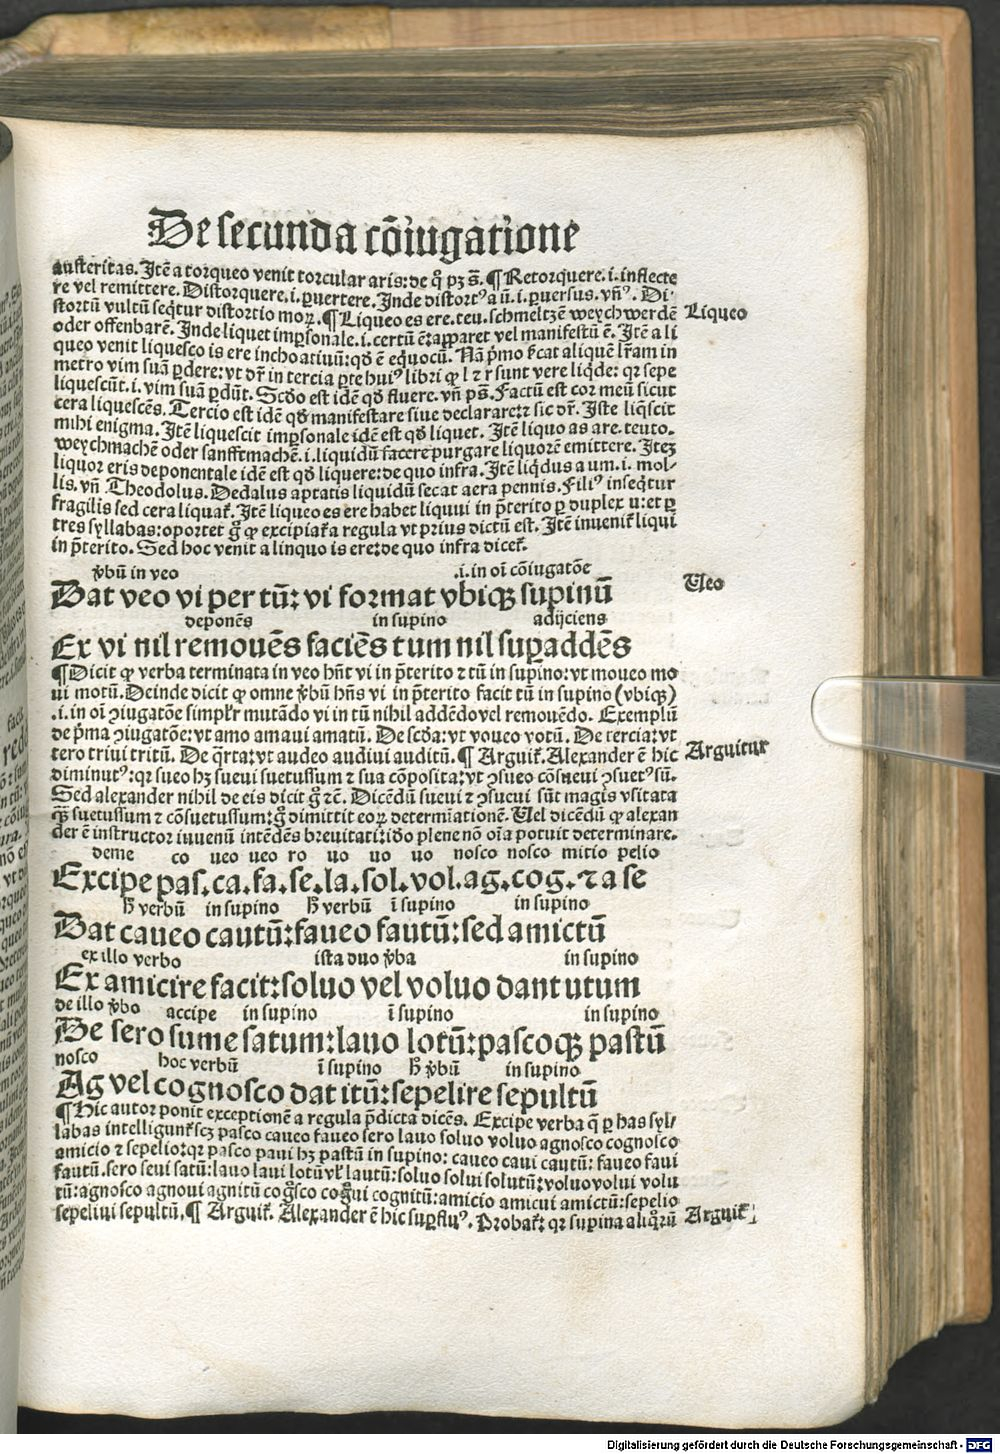 De secunda cōiugatione
austeritas. Jtē a torqueo venit torcular aris: de q̊ pꝫ s̄. ¶ Retorquere .i. inflecte
re vel remittere. Distorquere .i. ꝑuertere. Inde distortꝰ a ū .i. ꝑuersus. vn̄ꝰ. Di
stortū vultū seq̄tur distortio moꝝ. ¶ Liqueo es ere. teu. schmeltzē weych werdē
Liqueo
oder offenbarē. Inde liquet imꝑsonale .i. certū ē: apparet vel manifestū ē. Jtē a li
queo venit liquesco is ere inchoatiuū: qđ ē eq̇uocū. Nā p̄mo v̄cat aliquē lr̄am in
metro vim suā ꝑdere: vt dr̄ in tercia ꝑte huiꝰ libri ꝙ l ⁊ r sunt vere liq̇de: qꝛ sepe
liquescūt .i. vim suā ꝑdūt. Scđo est idē qđ fluere. vn̄ ps̄. Factū est cor meū sicut
cera liquescēs. Tercio est idē qđ manifestare siue declarare: ⁊ sic dr̄. Iste liq̄scit
mihi enigma. Jtē liquescit imꝑsonale idē est qđ liquet. Jtē liquo as are. teuto.
weychmachē oder sanfftmachē .i. liquidū facere purgare liquorē emittere. Jteꝫ
liquor eris deponentale idē est qđ liquere: de quo infra. Jtē liq̇dus a um .i. mol⸗
lis. vn̄ Theodolus. Dedalus aptatis liquidū secat aera pennis. Filiꝰ inseq̄tur
fragilis sed cera liquat᷑. Jtē liqueo es ere habet liquui in p̄terito ꝑ duplex u: et ꝑ
tres syllabas: oportet g̊ ꝙ excipiat᷑ a regula vt prius dictū est. Jtē inuenit᷑ liqui
in p̄terito. Sed hoc venit a linquo is ere: de quo infra dicet᷑.
v̄bū in veo .i. in oī cōiugatōe
Dat veo vi per tū: vi format vbiqꝫ supinū
Ueo
deponēs in supino adijciens
Ex vi nil remouēs faciēs tum nil suꝑaddēs
¶ Dicit ꝙ verba terminata in veo hn̄t vi in p̄terito ⁊ tū in supino: vt moueo mo
ui motū. Deinde dicit ꝙ omne v̄bū hn̄s vi in p̄terito facit tū in supino (vbiqꝫ)
.i. in oī ꝯiugatōe simplr̄ mutādo vi in tū nihil addēdo vel remouēdo. Exemplū
de p̄ma ꝯiugatōe: vt amo amaui amatū. De scđa: vt voueo votū. De tercia: vt
tero triui tritū. De q̄rta: vt audeo audiui auditū. ¶ Arguit᷑. Alexander ē hic
Arguitur
diminutꝰ: qꝛ sueo hꝫ sueui suetussum ⁊ sua cōposita: vt ꝯsueo cōsueui ꝯsuetꝰsū.
Sed alexander nihil de eis dicit g̊ ⁊c̄. Dicēdū sueui ⁊ ꝯsueui sūt magis vsitata
qꝫ̄ suetussum ⁊ cōsuetussum: g̊ dimittit eoꝝ determīationē. Uel dicēdū ꝙ alexan
der ē instructor iuuenū intēdēs breuitati: iđo plene nō oīa potuit determinare.
deme co ueo ueo ro uo uo uo nosco nosco mitio pelio
Excipe pas. ca. fa. se. la. sol. vol. ag. cog. ⁊ a se
h̄ verbū in supino h̄ verbū ī supino in supino
Dat caueo cautū: faueo fautū: sed amictū
ex illo verbo ista duo v̄ba in supino
Ex amicire facit: soluo vel voluo dant utum
de illo v̄bo accipe in supino ī supino in supino
De sero sume satum: lauo lotū: pascoqꝫ pastū
nosco hoc verbū ī supino h̄ v̄bū in supino
Ag vel cognosco dat itū: sepelire sepultū
¶ Hic autor ponit exceptionē a regula p̄dicta dicēs. Excipe verba q̄ ꝑ has syl⸗
labas intelligunt᷑ scꝫ pasco caueo faueo sero lauo soluo voluo agnosco cognosco
amicio ⁊ sepelio: qꝛ pasco paui hꝫ pastū in supino: caueo caui cautū: faueo faui
fautū. sero seui satū: lauo laui lotū vl᷑ lautū: soluo solui solutū: voluo volui volu
tū: agnosco agnoui agnitū cog̊sco cog̊ui cognitū: amicio amicui amictū: sepelio
sepeliui sepultū. ¶ Arguit᷑. Alexander ē hic suꝑfluꝰ. Probat᷑: qꝛ supina aliq̊rū
Arguit᷑
Digitalisierung gefördert durch die Deutsche Forschungsgemeinschaft - DFG